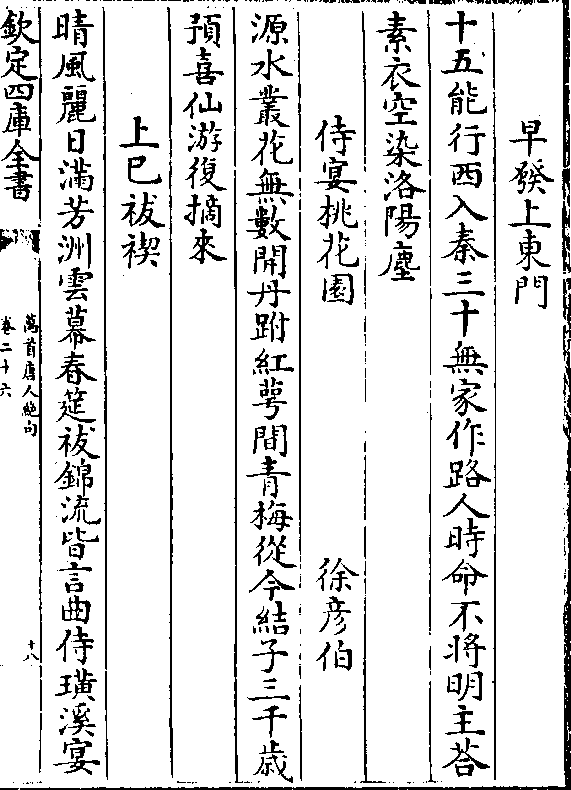 早發上東門
十五能行西入秦三十無家作路人時命不將明主荅
素衣空染洛陽塵
侍宴桃花園 徐彦伯
源水叢花無數開丹跗紅萼間青梅從今結子三千歳
預喜仙游復摘來
上巳祓禊
晴風麗日滿芳洲雲幕春筵祓錦流皆言曲侍璜溪宴
欽定四庫全書
萬首唐人絶句
卷二十六
十八